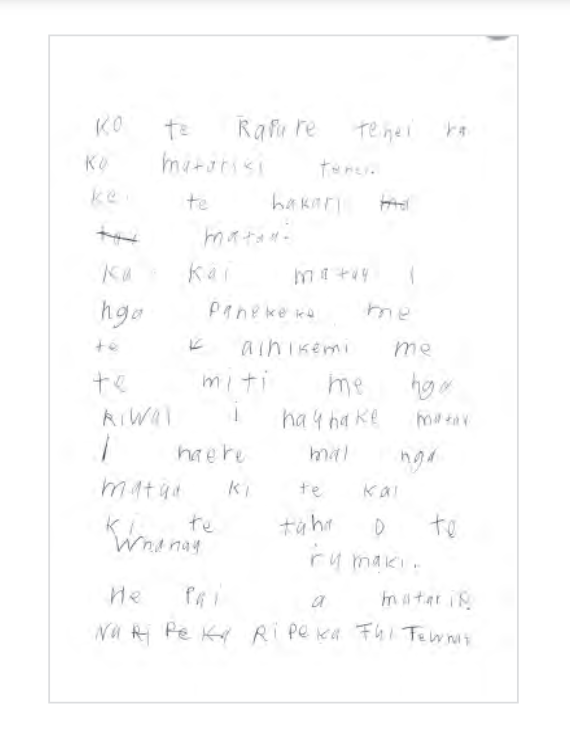 KO te Rapare tenei ra
Ko matariki tenei.
kei te hakari ma
tau matau.
Ka kai matau i
nga panekeke me
te k aihikemi me
te miti me nga
RiWai i hauhake matau
I haere mai nga
matua ki te kai
ki te taha o te
Whanau rumaki.
He Pai a matariki
Na Ri Pe Ka Ripeka